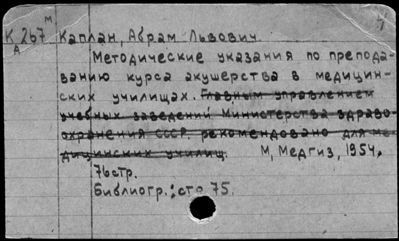 К 267 м Каплан, Абрам Львович.
А
Методические указания по препода-
ванию курса акушерства в медицин-
ских училищах. Главным управлением
учебных заведений Министерства здраво-
охранения СССР рекомендовано для ме-
дицинских училищ. М, Медгиз, 1954.
76стр.
Библиогр.: стр 75.